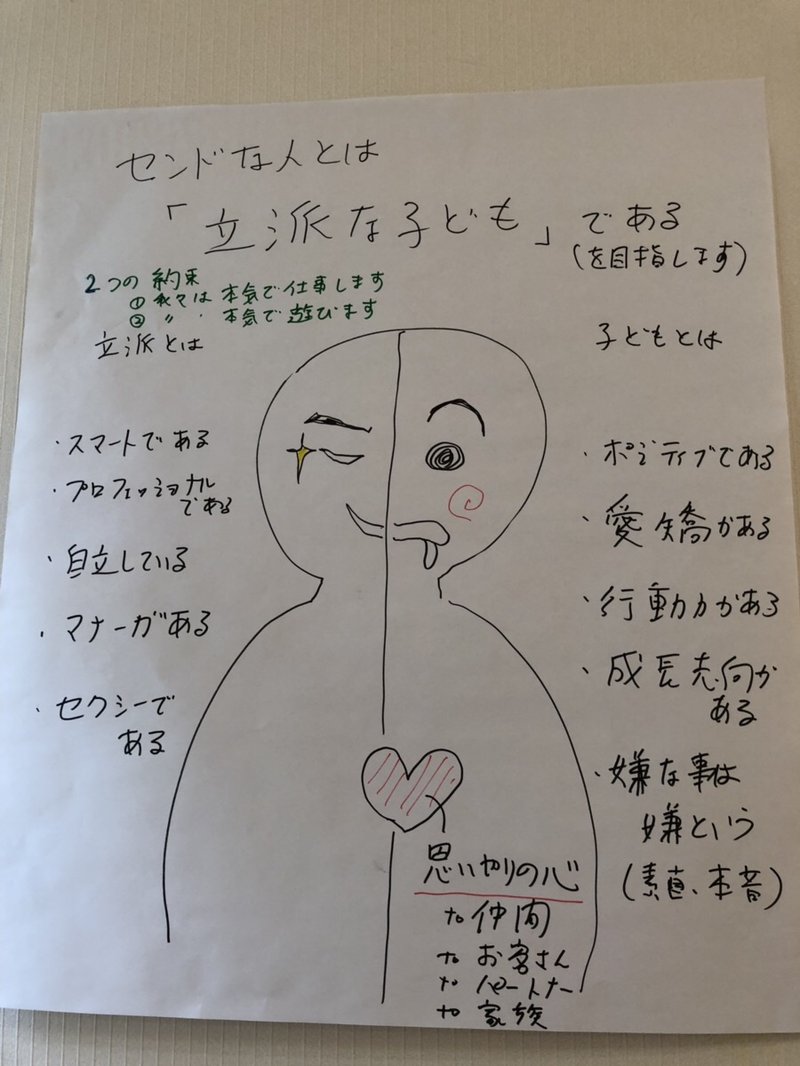 センドな人とは
「立派な子ども」である
(を目指します)
2つの約束
① 我々は 本気で仕事します
② 〃 、本気で遊びます
立派とは
・スマートである
・プロフェッショナル
である
・自立している
・マナーがある
・セクシーで
ある
子どもとは
・ポジティブである
・愛嬌がある
・行動力がある
・成長志向が
ある
・嫌な事は
嫌という
(素直、本音)
思いやりの心
to 仲間
to お客さん
to パートナー
to 家族